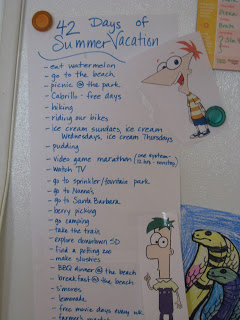 42 Days of
Summer Vacation
- eat watermelon
- go to the beach
- picnic @ the park
- Cabrillo - free days
- hiking
- riding our bikes
- ice cream sundaes, ice cream
Wednesdays, ice cream Thursdays
- pudding
- video game marathon
- watch TV
- go to sprinkler/fountain park
- go to Nana's
- go to Santa Barbara
- berry picking
- go camping
- take the train
- explore downtown SD
- find a petting zoo
- make slushies
- BBQ dinner @ the beach
- breakfast @ the beach
- s'mores
- lemonade
- free movie days every wk.
- farmer's market